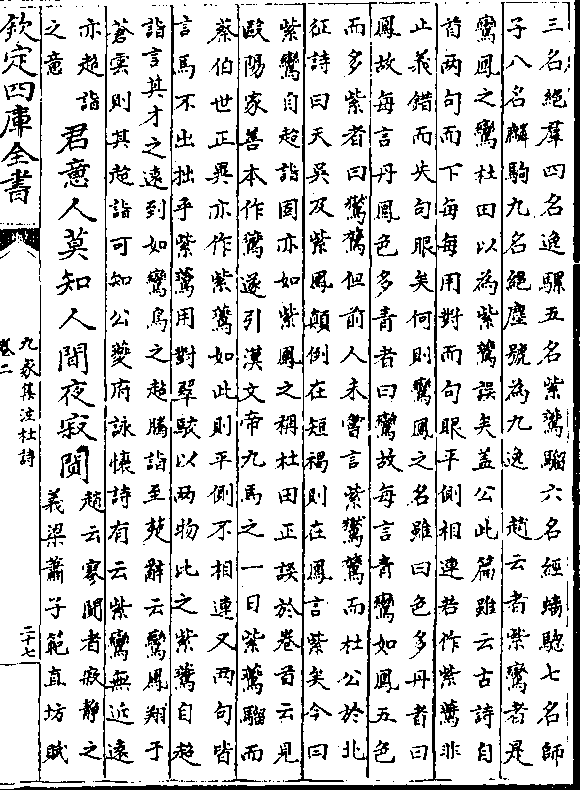 三名絕羣四名逸驃五名紫鷰騮六名經驄七名師
子八名驎駒九名絕塵號為九逸　趙云者紫鸞者是
鸞鳳之鸞杜田以為紫鷰誤矣蓋公此篇雖云古詩自
首兩句而下每每用對而句眼平側相連若作紫鷰非
止義錯而失句眼矣何則鸞鳳之名雖曰色多丹者曰
鳳故每言丹鳳色多青者曰鸞故每言青鸞如鳳五色
而多紫者曰鸑鷟但前人未嘗言紫鸑鷟而杜公於北
征詩曰天吳及紫鳳顛倒在短褐則在鳳言紫矣今曰
紫鸞自超詣固亦如紫鳳之稱杜田正誤於卷首云見
歐陽家善本作鷰遂引漢文帝九馬之一曰紫鷰騮而
蔡伯世正異亦作紫鷰如此則平側不相連又兩句皆
言馬不出拙乎紫鷰用對翠駮以兩物比之紫鷰自超
詣言其才之遠到如鸞鳥之超騰詣至楚辭云鸞鳳翔于
蒼雲則其超詣可知公夔府詠懷詩有云紫鸞無近遠
亦超詣
之意
君意人莫知人間夜寂闃
趙云寥闃者寂靜之
義梁蕭子範直坊賦
欽定四庫全書
九家集注杜詩
卷二
二十七